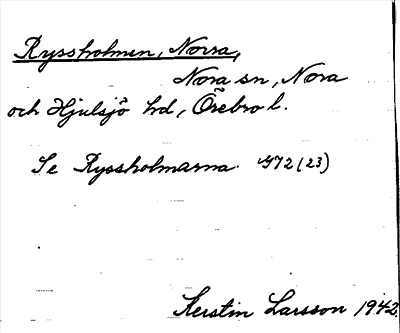 Ryssholmen, Norra,
Nora sn, Nora
och Hjulsjö hd, Örebro l.
Se Ryssholmarna. 972 (23)
Kerstin Larsson 1942.